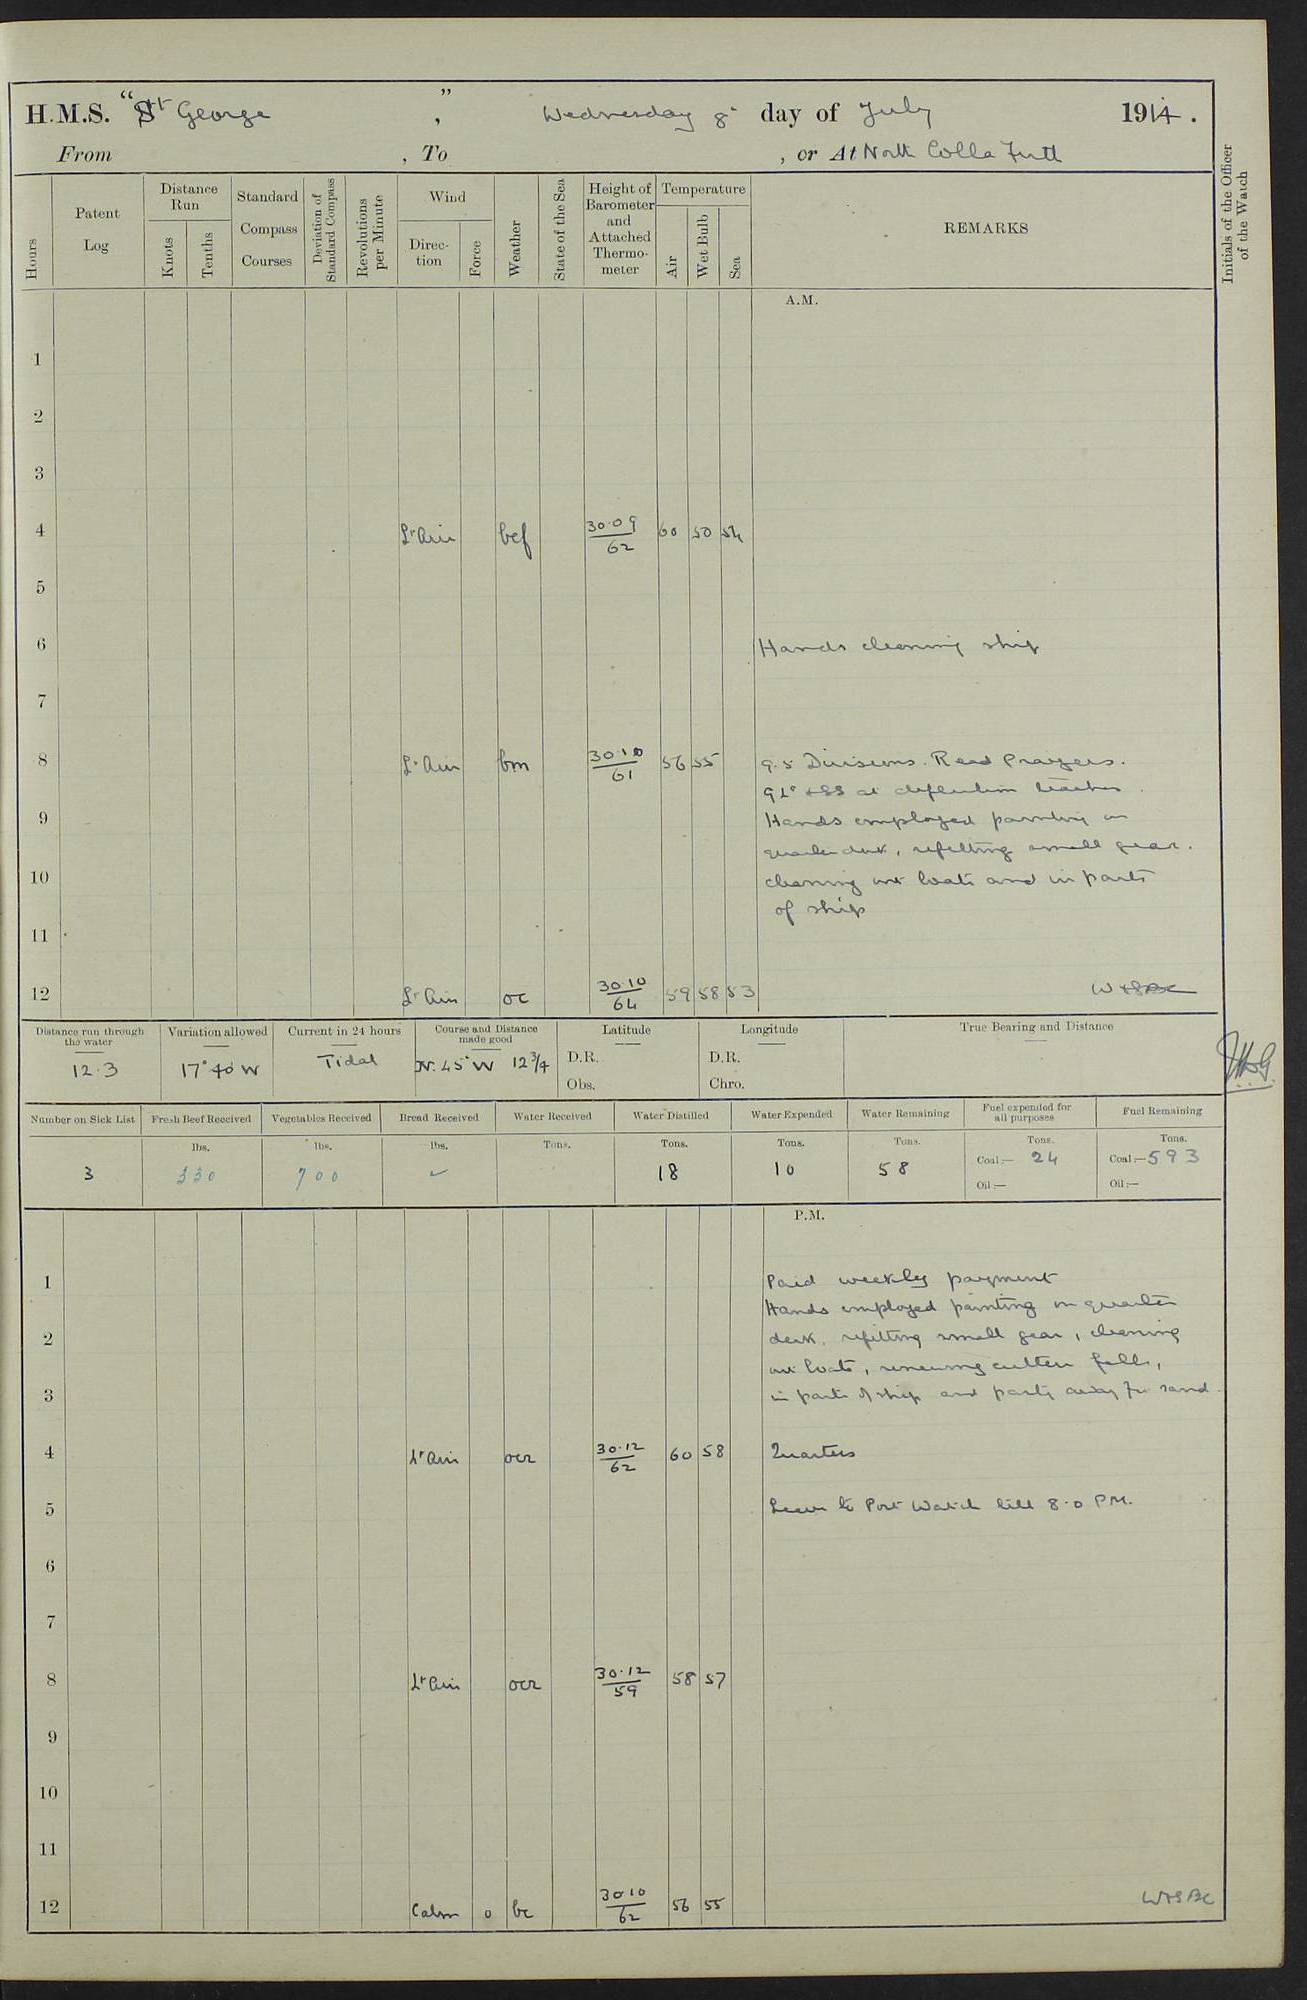 H.M.S. "St George", Wednesday 8th day of July 1914.
From , To , or At North Colla Firth
Hours
Patent Log
Distance Run
Knots
Tenths
Standard Compass Courses
Deviation of Standard Compass
Revolutions per Minute
Wind
Direc-tion
Force
Weather
State of the Sea
Height of Barometer and Attached Thermo-meter
Temperature
Air
Wet Bulb
Sea
REMARKS
Initials of the Officer of the Watch
A.M.
1
2
3
4 Lt Air bcf 30.09/62 60 50 54
5
6 Hands cleaning ship
7
8 Lt Air bm 30.10/61 56 55 9.5 Divisions. Read Prayers.
at deflection teacher.
9 Hands employed painting on
quarter deck, refitting small gear.
10 cleaning out boats and in parts
of ship
11
12 Lt Air oc 30.10/64 59 58 53 WHSBC
Distance run through the water
12.3
Variation allowed
17° 40' W
Current in 24 hours
Tidal
Course and Distance made good
N. 45° W 12 3/4
Latitude
D.R.
Obs.
Longitude
D.R.
Chro.
True Bearing and Distance
Number on Sick List
3
Fresh Beef Received
lbs.
330
Vegetables Received
lbs.
700
Bread Received
lbs.
✓
Water Received
Tons.
Water Distilled
Tons.
18
Water Expended
Tons.
10
Water Remaining
Tons.
58
Fuel expended for all purposes
Tons.
Coal:— 24
Oil:—
Fuel Remaining
Tons.
Coal:— 593
Oil:—
P.M.
1 Paid weekly payment
Hands employed painting on quarter
2 deck, refitting small gear, cleaning
out boats, renewing cutters falls,
3 in parts of ship and party away for sand.
4 Lt Air ocr 30.12/62 60 58 Quarters
5 Leave to Port Watch till 8.0 PM.
6
7
8 Lt Air ocr 30.12/59 58 57
9
10
11
12 Calm 0 bc 30.10/62 56 55 WHSBC